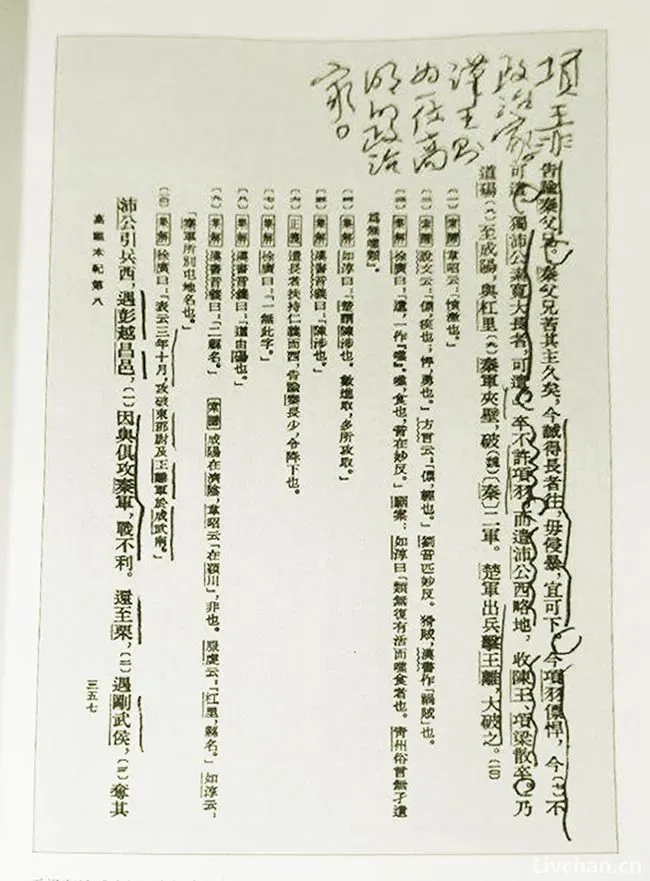 項王非
政治家。
漢王則
为一位高
明的政治
家。
告諭秦父兄。秦父兄苦其主久矣,今誠得長者往,毋侵暴,宜可下。今項羽僄悍,今〔七〕不
可遣。獨沛公素寬大長者,可遣。」卒不許項羽,而遣沛公西略地,收陳王、項梁散卒。乃
道碭〔八〕至成陽,與杠里〔九〕秦軍夾壁,破(魏)〔秦〕二軍。楚軍出兵擊王離,大破之。〔一〇〕
〔一〕索隱韋昭云:「憤激也。」
〔二〕索隱說文云:「僄,疾也;悍,勇也。」方言云:「僄,輕也。」劉音匹妙反。猾賊,漢書作「禍賊」也。
〔三〕集解徐廣曰:「遺,一作『噍』。噍,食也,音在妙反。」駰案:如淳曰「類無復有活而噍食者也。青州俗言無孑遺
爲無噍類」。
〔四〕集解如淳曰:「楚謂陳涉也。數進取,多所攻取。」
〔五〕集解漢書音義曰:「陳涉也。」
〔六〕正義遣長者扶持仁義而西,告諭秦長少,令降下也。
〔七〕集解徐廣曰:「一無此字。」
〔八〕集解漢書音義曰:「道由碭也。」
〔九〕集解漢書音義曰:「二縣名。」索隱成陽在濟陰,韋昭云「在潁川」,非也。服虔云:「杠里,縣名。」如淳云:
「秦軍所別屯地名也。」
〔一〇〕集解徐廣曰:「表云三年十月,攻破東郡尉及王離軍於成武南。」
沛公引兵西,遇彭越昌邑,〔一〕因與俱攻秦軍,戰不利。還至栗,〔二〕遇剛武侯,〔三〕奪其
高祖本紀第八
三五七
Livchan.cn